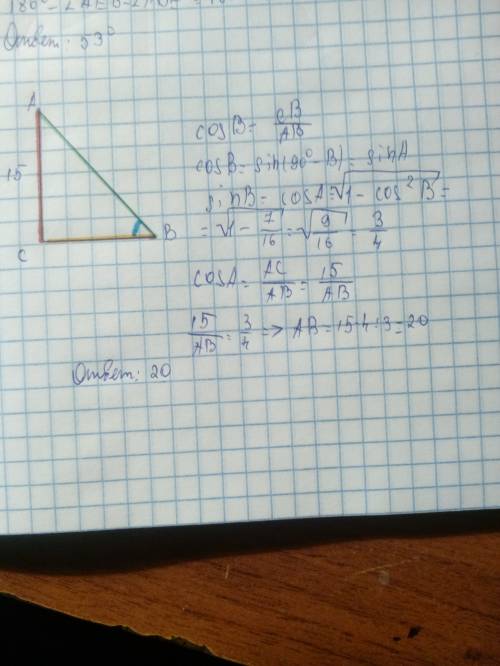 Ответ: 53°
A
15
C
B
cosB = CB/AB
cosB = sin(90° - B) = sinA
sinB = cosA = √1 - cos²B =
= √1 - 7/16 = √9/16 = 3/4
cosA = AC/AB = 15/AB
15/AB = 3/4 => AB = 15·4:3 = 20
Ответ: 20